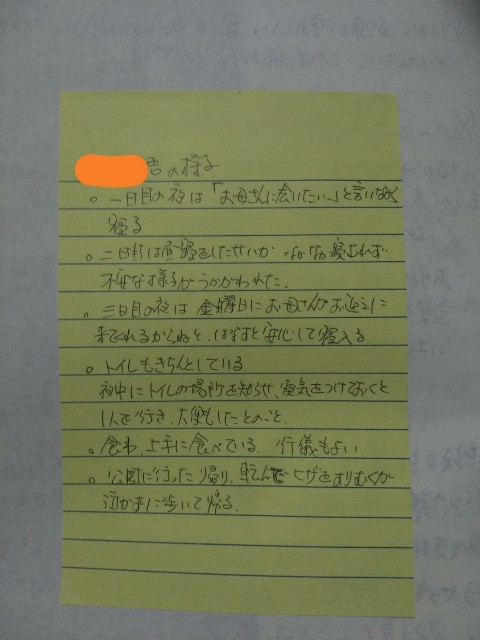 君の様子
。一日目の夜は「お母さんに会いたい」と言いながら
寝る
。二日目は昼寝をしたせいか なかなか寝られず
不安な様子がうかがわれた。
。三日目の夜は 金曜日にお母さんがお迎えに
来てくれるからねと、はなすと安心して寝入る
。トイレもきちんとしている
夜中にトイレの場所を知らせ、電気をつけておくと
1人で行き、大便したとのこと。
。食事、上手に食べている 行儀もよい
。公園に行った帰り、転んで ヒザをすりむくが
泣かずに歩いて帰る。